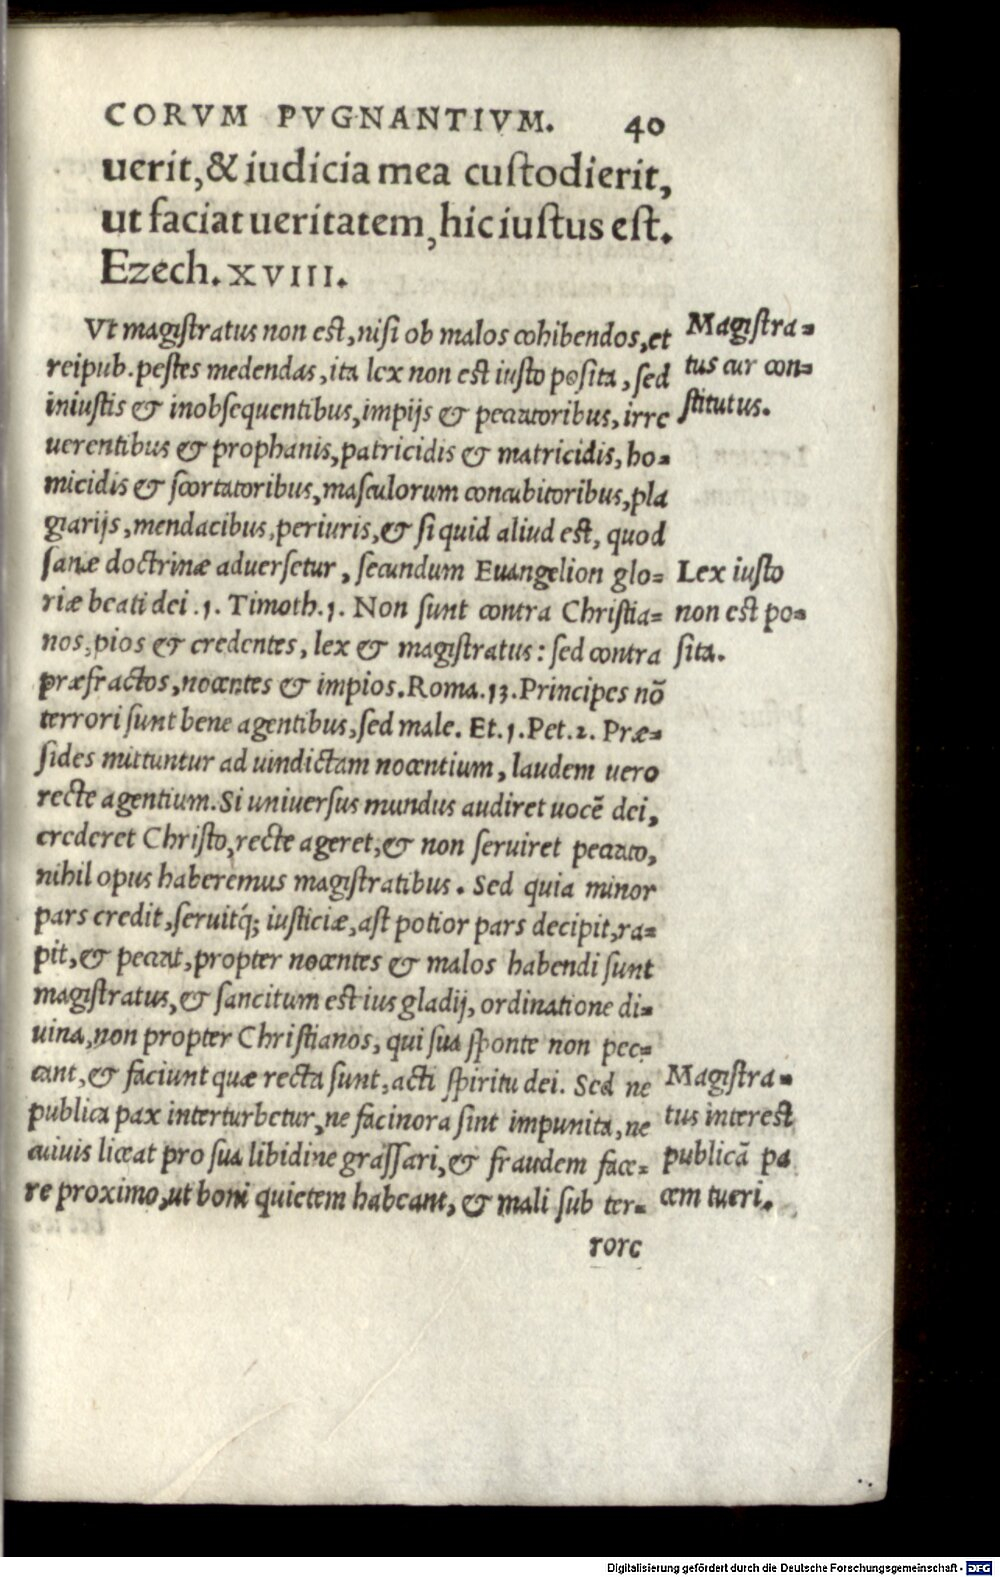 CORVM PVGNANTIVM. 40
uerit, & iudicia mea custodierit,
ut faciat ueritatem, hic iustus est.
Ezech. XVIII.
Vt magistratus non est, nisi ob malos cohibendos, et
reipub. pestes medendas, ita lex non est iusto posita, sed
iniustis & inobsequentibus, impijs & peccatoribus, irre
uerentibus & prophanis, patricidis & matricidis, ho=
micidis & scortatoribus, masculorum concubitoribus, pla
giarijs, mendacibus, periuris, & si quid aliud est, quod
sanæ doctrinæ aduersetur, secundum Euangelion glo=
riæ beati dei. 1. Timoth. 1. Non sunt contra Christia=
nos, pios & credentes, lex & magistratus: sed contra
præfractos, nocentes & impios. Roma. 13. Principes nõ
terrori sunt bene agentibus, sed male. Et. 1. Pet. 2. Præ=
sides mittuntur ad uindictam nocentium, laudem uero
recte agentium. Si uniuersus mundus audiret uocē dei,
crederet Christo, recte ageret, & non seruiret peccato,
nihil opus haberemus magistratibus. Sed quia minor
pars credit, seruitq́; iusticiæ, ast potior pars decipit, ra=
pit, & peccat, propter nocentes & malos habendi sunt
magistratus, & sancitum est ius gladij, ordinatione di=
uina, non propter Christianos, qui sua sponte non pec=
cant, & faciunt quæ recta sunt, acti spiritu dei. Sed ne
publica pax interturbetur, ne facinora sint impunita, ne
cuiuis liceat pro sua libidine grassari, & fraudem face=
re proximo, ut boni quietem habeant, & mali sub ter=
rore
Magistra=
tus cur con=
stitutus.
Lex iusto
non est po=
sita.
Magistra=
tus interest
publicā pa
cem tueri.
Digitalisierung gefördert durch die Deutsche Forschungsgemeinschaft - DFG